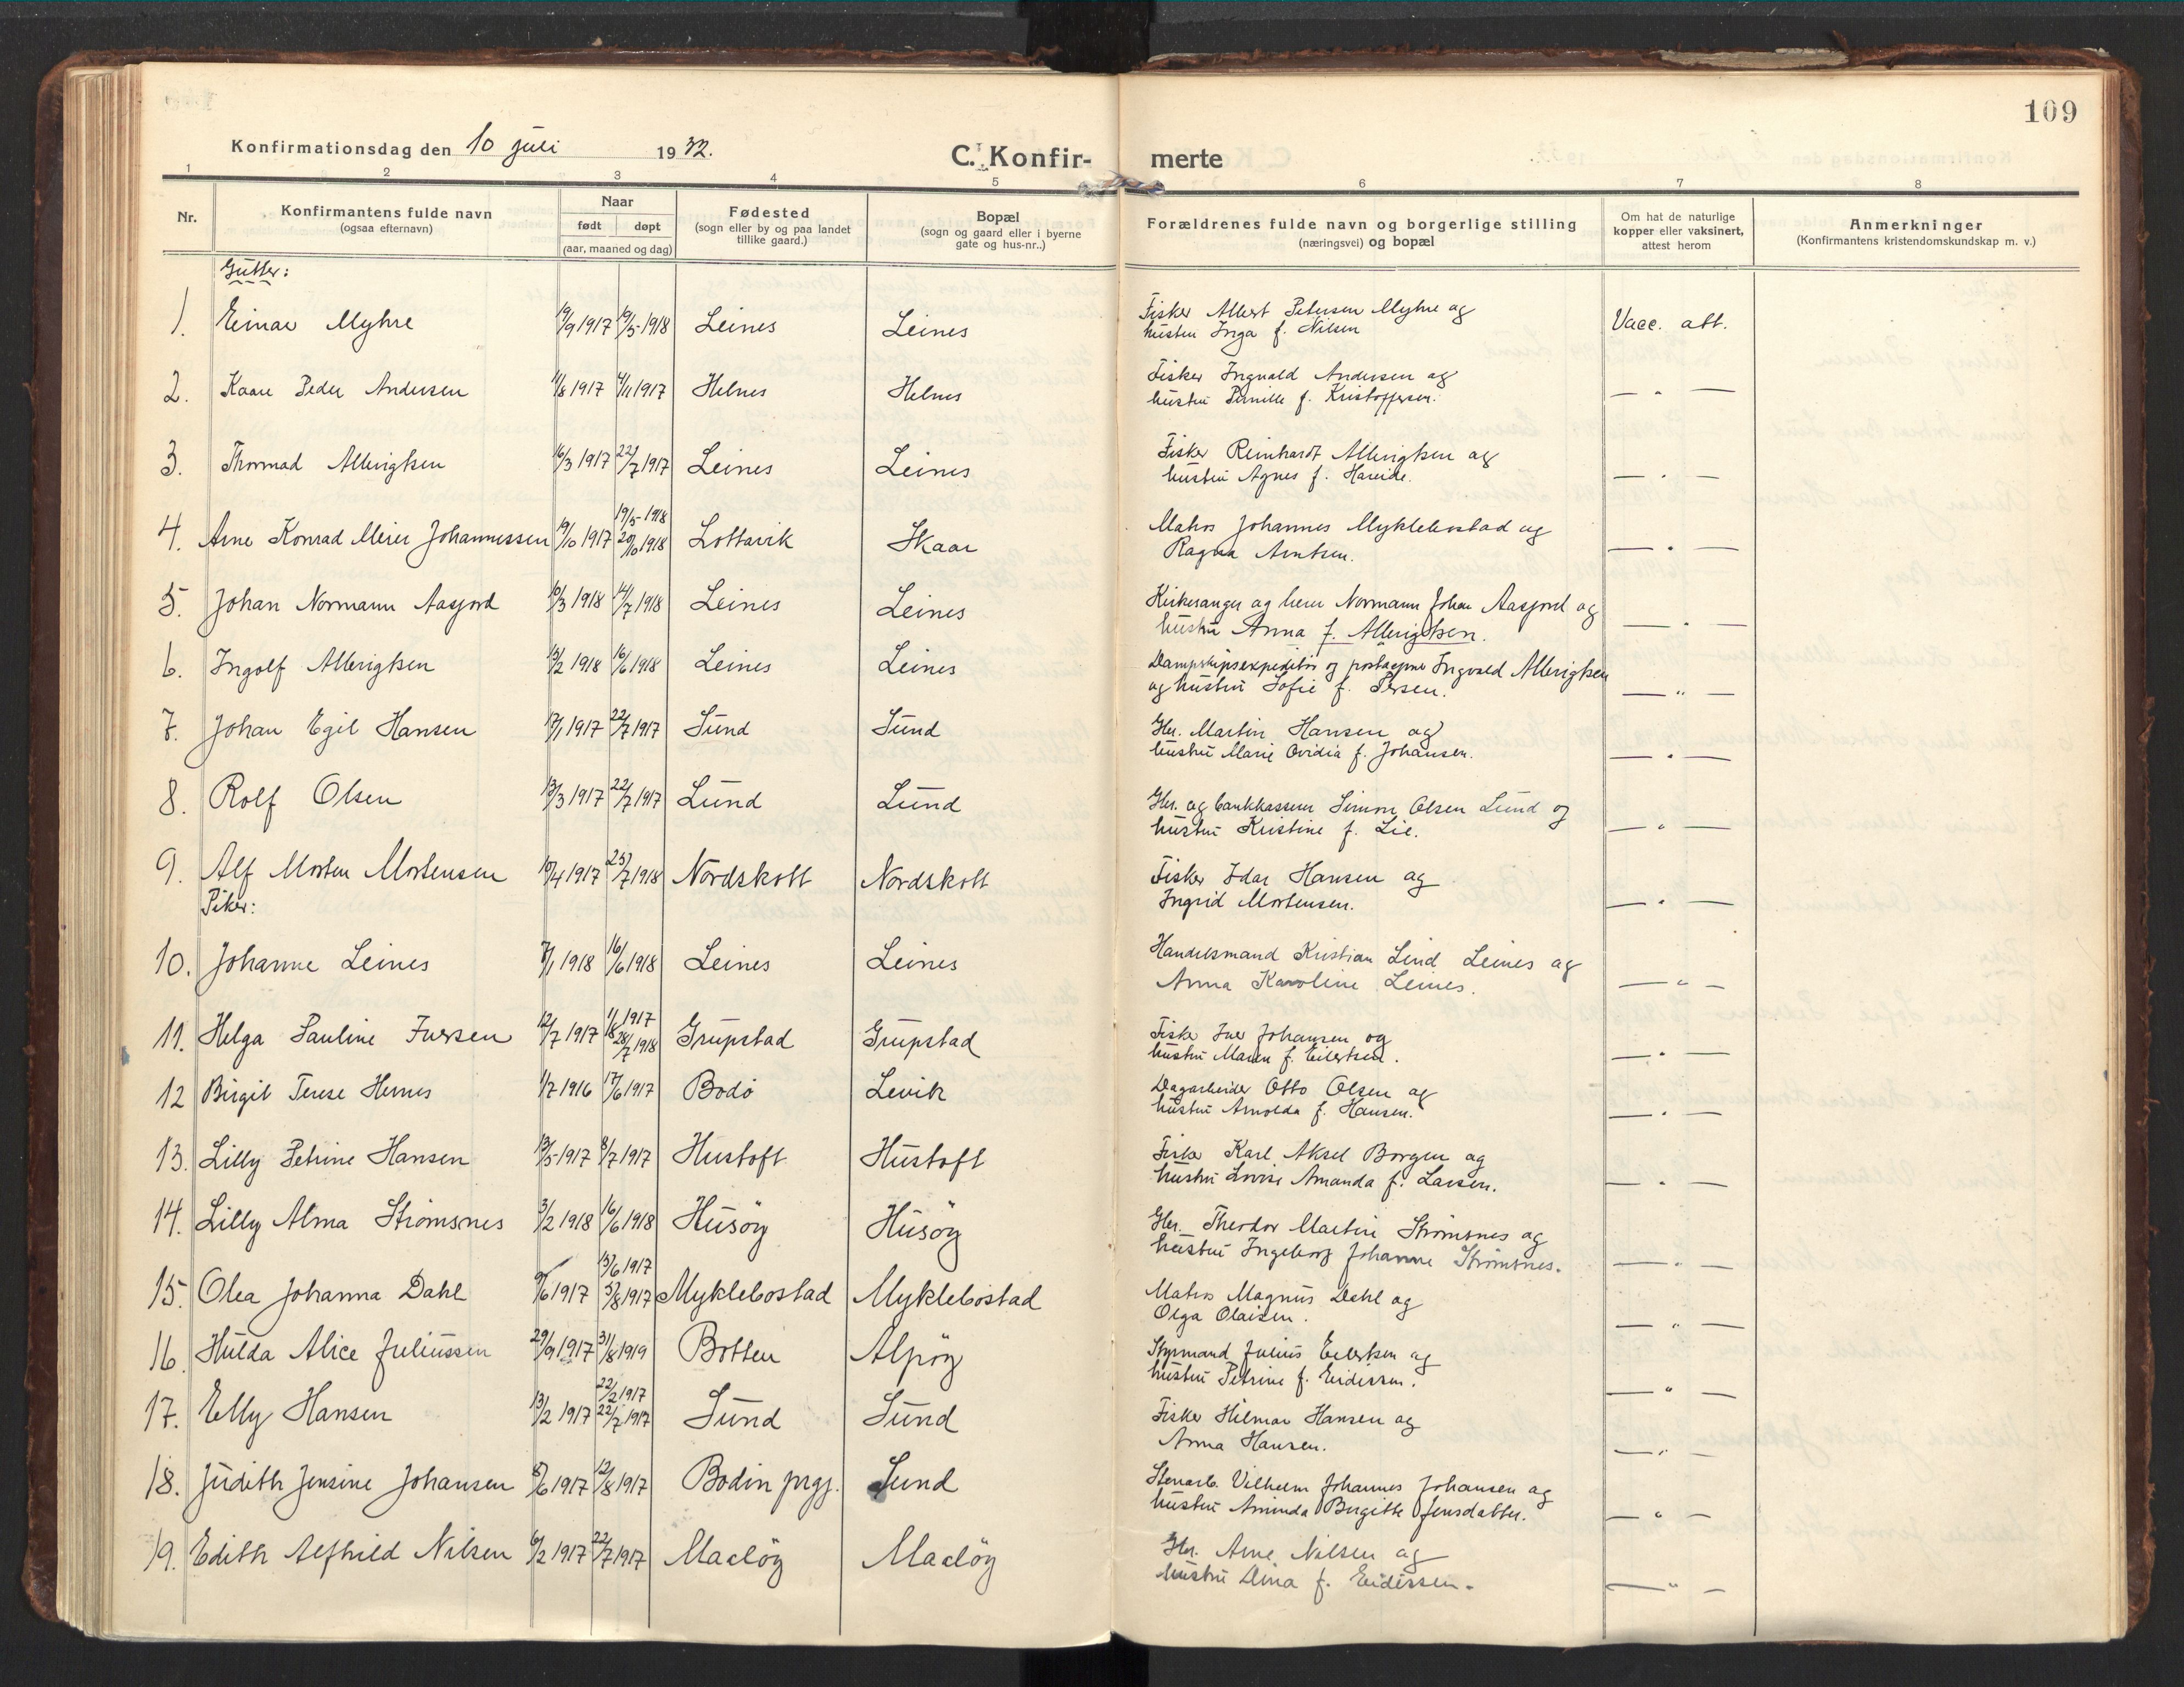 109
Konfirmationsdag den 10 juli 1932.
C. Konfir- merte
1 2 3 4 5 6 7 8
Nr.
Konfirmantens fulde navn
(ogsaa efternavn)
Naar
født døpt
(aar, maaned og dag)
Fødested
(sogn eller by og paa landet
tillike gaard.)
Bopæl
(sogn og gaard eller i byerne
gate og hus-nr..)
Forældrenes fulde navn og borgerlige stilling
(næringsvei) og bopæl
Om hat de naturlige
kopper eller vaksinert,
attest herom
Anmerkninger
(Konfirmantens kristendomskundskap m. v.)
Gutter:
1. Einar Myhre 19/9 1917 19/5-1918 Leines Leines Fisker Albert Petersen Myhre og Vacc. att.
hustru Inga f. Nilsen
2. Kaare Peder Andersen 11/8 1917 4/11 1917 Helnes Helnes Fisker Ingvald Andersen og — " —
hustru Pernille f. Kristoffersen.
3. Thormad Allerigtsen 16/3 1917 22/7 1917 Leines Leines Fisker Reinhardt Allerigtsen og — " —
hustru Agnes f. Hareide.
19/5-1918
4. Arne Konrad Meier Johannessen 19/10 1917 20/10 1918 Lottavik Skaar Matros Johannes Myklebostad og — " —
Ragna Arntsen.
5. Johan Normann Aasjord 10/3 1918 14/7 1918 Leines Leines Kirkesanger og lærer Normann Johan Aasjord og — " —
hustru Anna f. Allerigtsen.
6. Ingolf Allerigtsen 13/2 1918 16/6 1918 Leines Leines Dampskipsexpeditør og postaapner Ingvald Allerigtsen — " —
og hustru Sofie f. Persen.
7. Johan Egil Hansen 17/1 1917 22/7 1917 Sund Sund Gbr. Martin Hansen og — " —
hustru Marie Ovidia f. Johansen.
8. Rolf Olsen 13/3 1917 22/7 1917 Lund Lund Gbr. og bankkasserer Simon Olsen Lund og — " —
hustru Kristine f. Lie.
9. Alf Morten Mortensen 10/4 1917 25/7 1918 Nordskott Nordskott Fisker Idar Hansen og — " —
Ingrid Mortensen.
Piker:
10. Johanne Leines 7/1 1918 16/6 1918 Leines Leines Handelsmand Kristian Lind Leines og — " —
Anna Karoline Leines.
11/8 1917
11. Helga Pauline Iversen 12/7 1917 28/7 1918 Grupstad Grupstad Fisker Iver Johansen og — " —
hustru Maren f. Eilertsen.
12 Birgit Terese Hernes 1/7 1916 17/6 1917 Bodø Levik Dagarbeider Otto Olsen og — " —
hustru Arnolda f. Hansen.
13. Lilly Petrine Hansen 13/5-1917 8/7 1917 Hustoft Hustoft Fisker Karl Aksel Borgen og — " —
hustru Lovise Amanda f. Larsen.
14. Lilly Alma Strömsnes 3/2 1918 16/6 1918 Husöy Husöy Gbr. Theodor Martin Strömsnes og — " —
hustru Ingeborg Johanne Strömsnes.
13/6 1917
15. Olea Johanna Dahl 9/6 1917 5/8 1917 Myklebostad Myklebostad Matros Magnus Dahl og — " —
Olga Olaisen.
16. Hulda Alice Juliussen 29/9 1917 31/8 1919 Botten Alpöy Styrmand Julius Eilertsen og — " —
hustru Petrine f. Eidissen.
22/2 1917
17. Elly Hansen 13/2 1917 22/7 1917 Sund Sund Fisker Hilmar Hansen og — " —
Anna Hansen.
18. Judith Jensine Johansen 8/6 1917 12/8 1917 Bodin prgj. Lund Stenarb. Vilhelm Johannes Johansen og — " —
hustru Aminda Birgitte Jensdatter.
19. Edith Alfhild Nilsen 6/2 1917 22/7 1917 Maaløy Maaløy Gbr. Arne Nilsen og — " —
hustru Dina f. Eidissen.